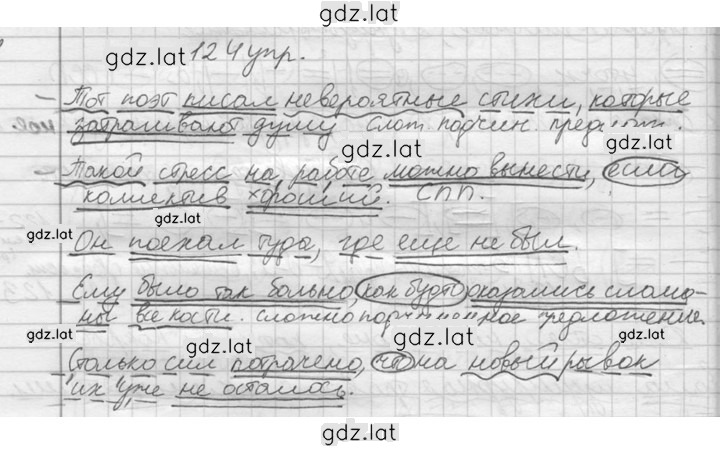 gdz.lat
gdz.lat 124 упр.
– Тот поэт писал невероятные стихи, которые
затрагивают душу слож. подчин. gdz.lat
gdz.lat gdz.lat
– Такой стресс на работе можно вынести, если
коллектив хороший. СПП.
gdz.lat
gdz.lat gdz.lat
Он поехал туда, где еще не был.
gdz.lat
Ему было так больно, как будто оказались слома-
ны все кости. сложноподчиненное предложение.
gdz.lat gdz.lat gdz.lat
gdz.lat
Столько сил потрачено, что на новый рывок
их уже не осталось.
gdz.lat